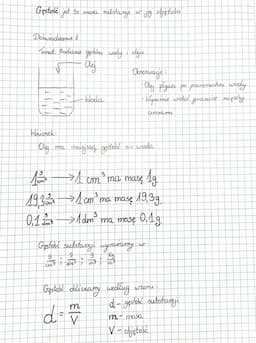 Gęstość jest to masa substancji w jej objętości
Doświadczenie 1
Temat: Badanie gęstości wody i oleju
Olej
Woda
Obserwacje:
Olej pływa po powierzchni wody
Wniosek:
Olej ma mniejszą gęstość niż woda
1 g/cm³ → 1 cm³ ma masę 1g
19,3 g/cm³ → 1 cm³ ma masę 19,3g
→ 1dm³ ma masę 0,1g
Gęstość substancji wyrażamy w
Gęstość obliczamy według wzoru:
d = m/V
d - gęstość substancji
m - masa
V - objętość